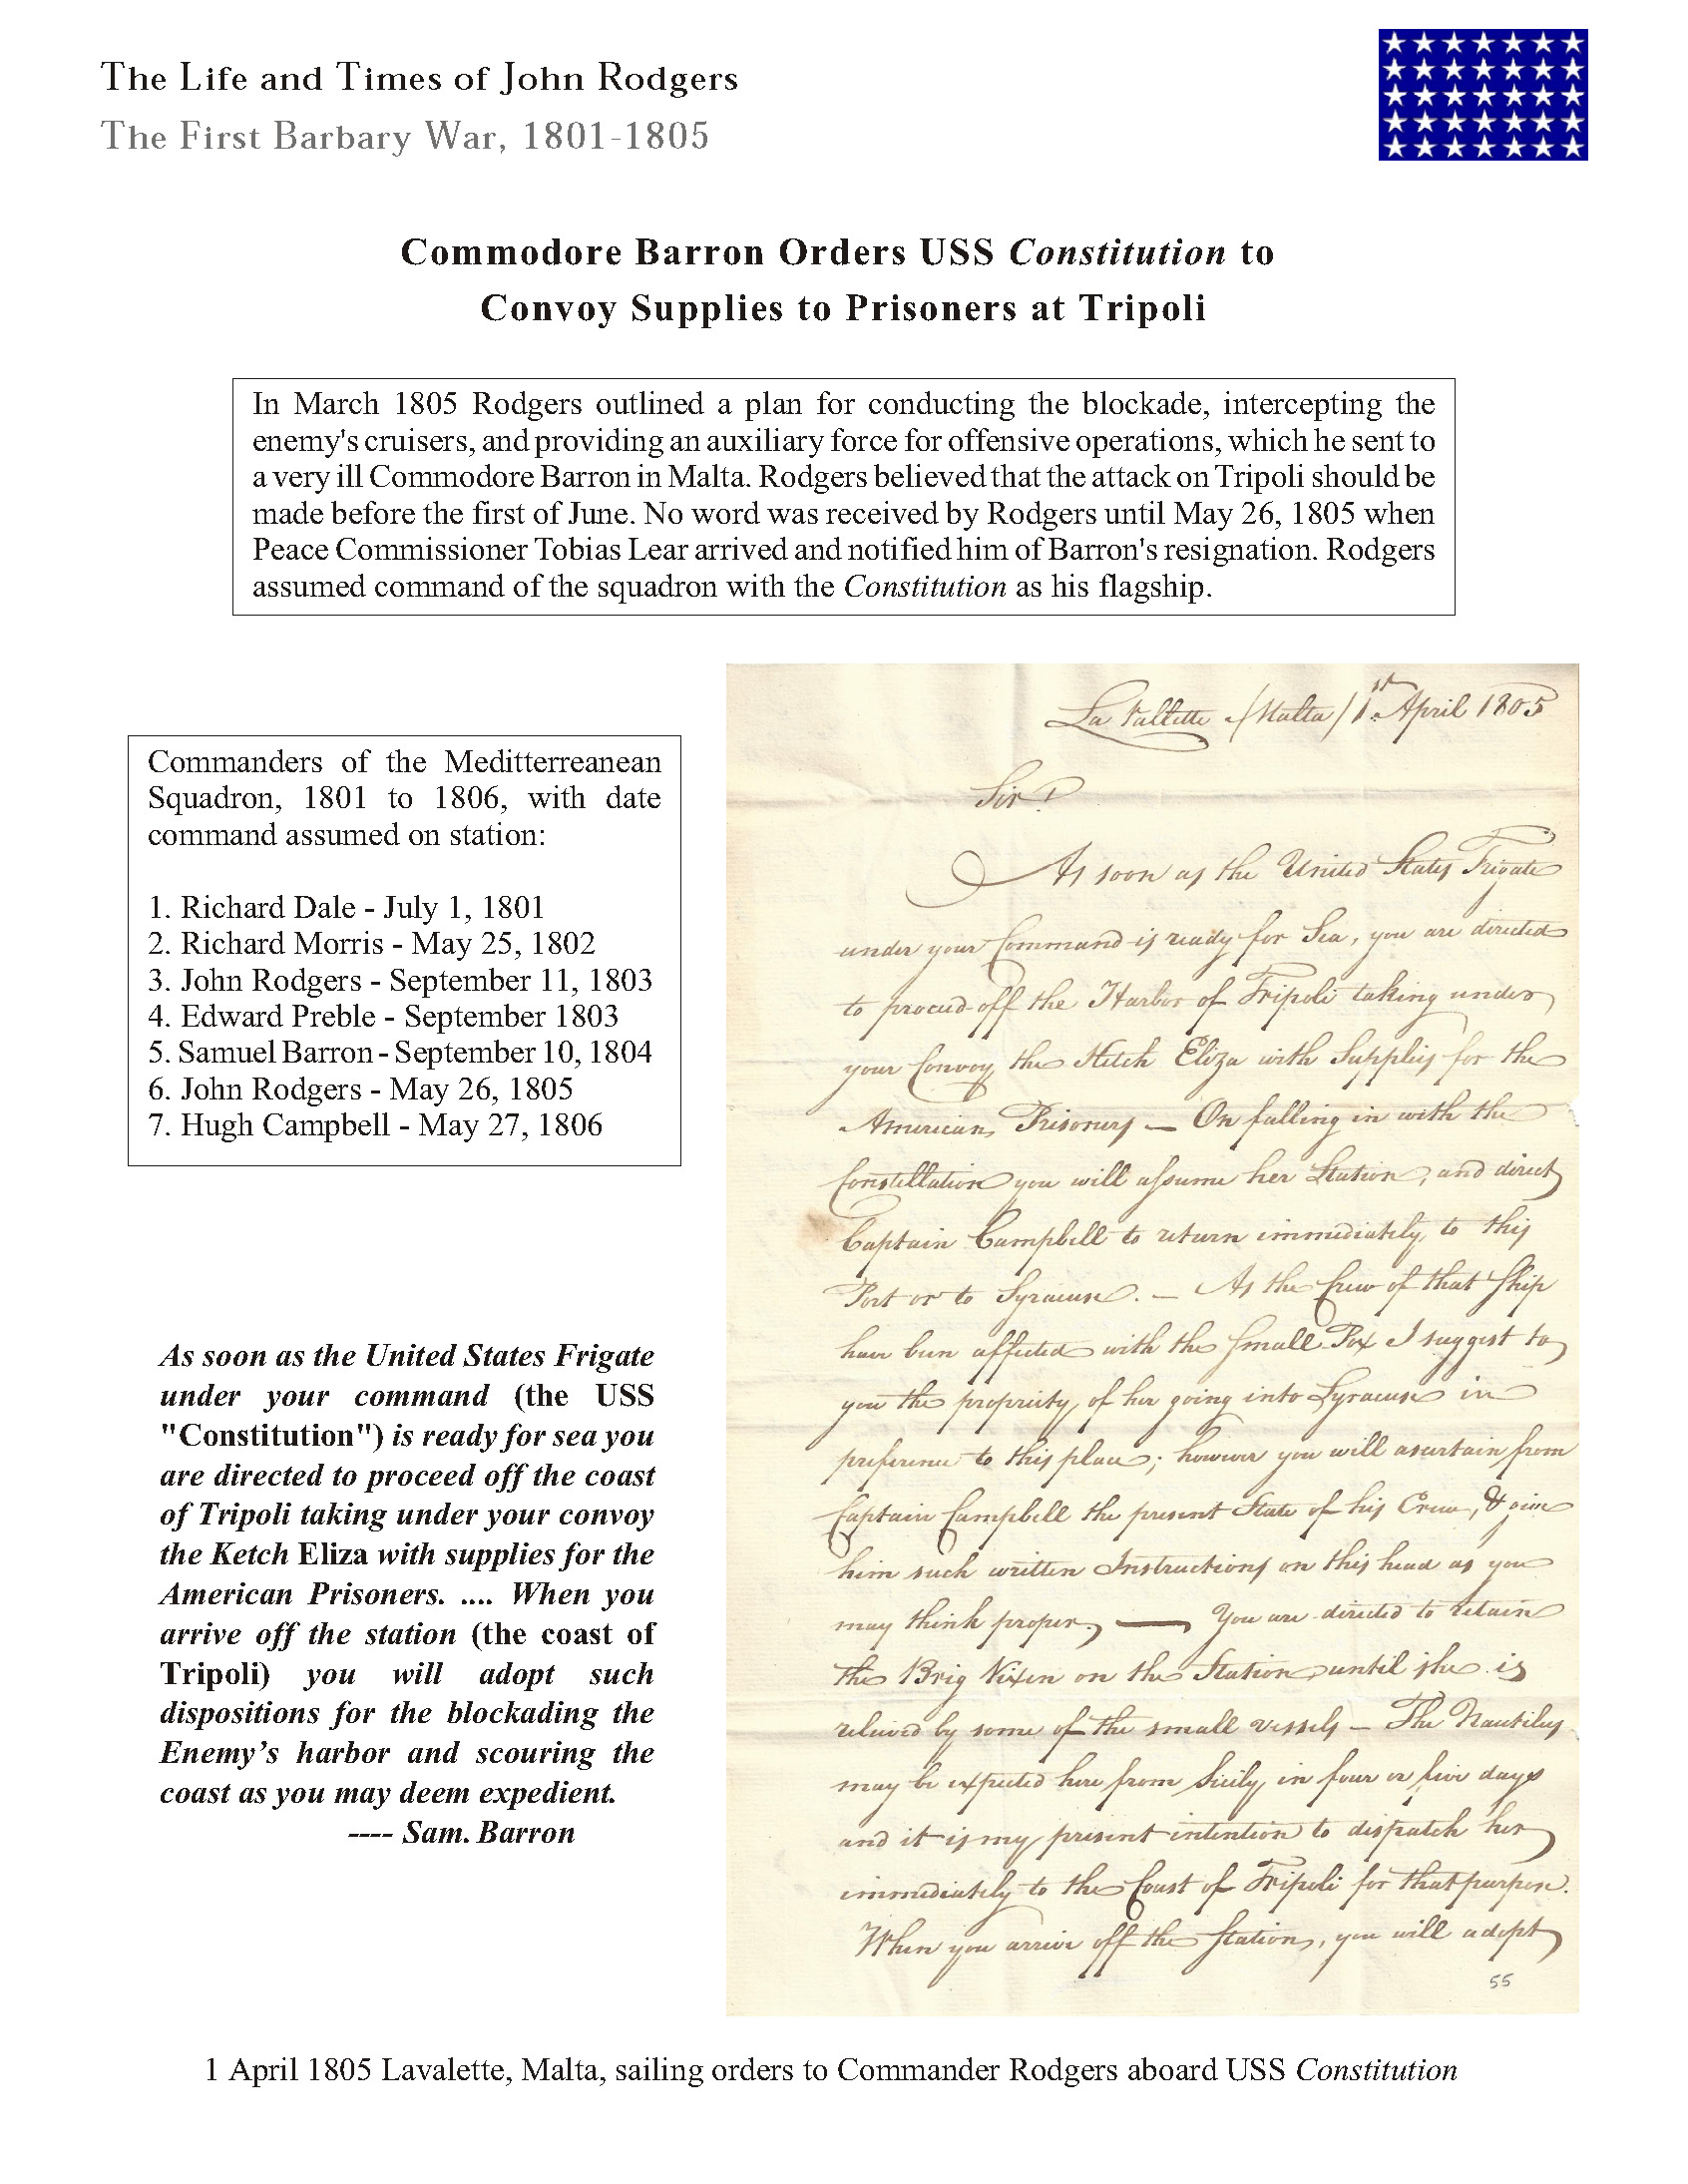 The Life and Times of John Rodgers
The First Barbary War, 1801-1805
Commodore Barron Orders USS Constitution to
Convoy Supplies to Prisoners at Tripoli
In March 1805 Rodgers outlined a plan for conducting the blockade, intercepting the
enemy's cruisers, and providing an auxiliary force for offensive operations, which he sent to
a very ill Commodore Barron in Malta. Rodgers believed that the attack on Tripoli should be
made before the first of June. No word was received by Rodgers until May 26, 1805 when
Peace Commissioner Tobias Lear arrived and notified him of Barron's resignation. Rodgers
assumed command of the squadron with the Constitution as his flagship.
Commanders of the Meditterreanean
Squadron, 1801 to 1806, with date
command assumed on station:
1. Richard Dale - July 1, 1801
2. Richard Morris - May 25, 1802
3. John Rodgers - September 11, 1803
4. Edward Preble - September 1803
5. Samuel Barron - September 10, 1804
6. John Rodgers - May 26, 1805
7. Hugh Campbell - May 27, 1806
As soon as the United States Frigate
under your command (the USS
"Constitution") is ready for sea you
are directed to proceed off the coast
of Tripoli taking under your convoy
the Ketch Eliza with supplies for the
American Prisoners. .... When you
arrive off the station (the coast of
Tripoli) you will adopt such
dispositions for the blockading the
Enemy’s harbor and scouring the
coast as you may deem expedient.
---- Sam. Barron
La Vallette (Malta) 1st April 1805
Sir
As soon as the United States Frigate
under your Command is ready for Sea, you are directed
to proceed off the Harbor of Tripoli taking under
your Convoy the Ketch Eliza with Supplies for the
American Prisoners — On falling in with the
Constellation you will assume her Station, and direct
Captain Campbell to return immediately to this
Port or to Syracuse. — As the Crew of that Ship
have been affected with the Small Pox I suggest to
you the propriety of her going into Syracuse in
preference to this place; however you will ascertain from
Captain Campbell the present State of his Crew, & give
him such written Instructions on this head as you
may think proper. — You are directed to retain
the Brig Vixen on the Station until she is
relieved by some of the small vessels — The Nautilus
may be expected here from Sicily in four or five days
and it is my present intention to dispatch her
immediately to the Coast of Tripoli for that purpose.
When you arrive off the Station, you will adopt
55
1 April 1805 Lavalette, Malta, sailing orders to Commander Rodgers aboard USS Constitution